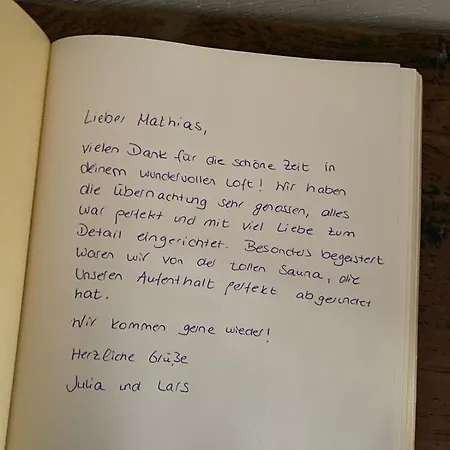 Lieber Mathias,
vielen Dank für die schöne Zeit in
deinem wundervollen Loft! Wir haben
die Übernachtung sehr genossen, alles
war perfekt und mit viel Liebe zum
Detail eingerichtet. Besonders begeistert
waren wir von der tollen Sauna, die
unseren Aufenthalt perfekt abgerundet
hat.
Wir kommen gerne wieder!
Herzliche Grüße
Julia und Lars